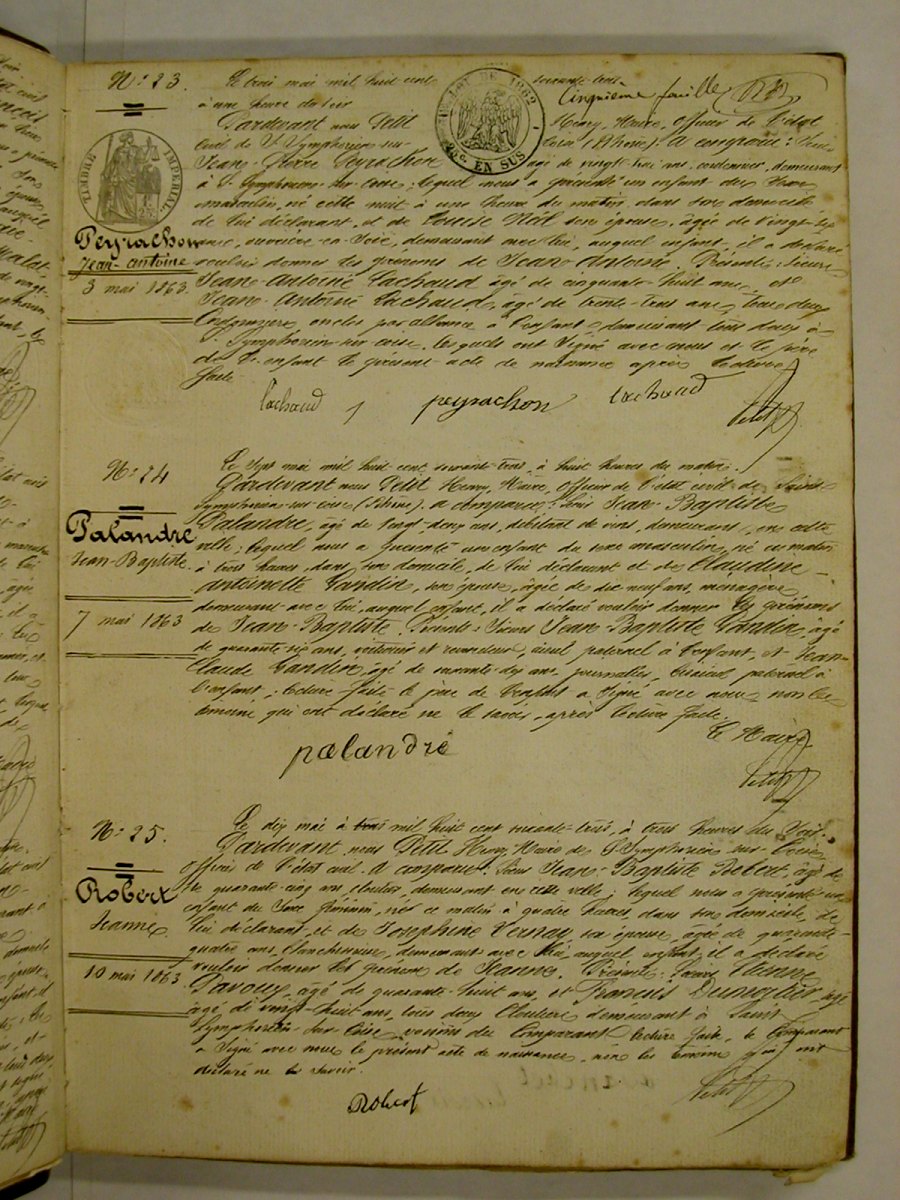 N° 23.
Peyrachon
Jean-Antoine
3 mai 1863
TIMBRE IMPERIAL
DE 1862
EN SUS
Cinquième feuille
Le trois mai mil huit cent soixante-trois
à une heure du soir
Pardevant nous Petit Henry, Maire, officier de l'état
civil de St Symphorien-sur-Coise (Rhône). A comparu : Sieur
Jean-Pierre Peyrachon âgé de vingt-trois ans, cordonnier, demeurant
à St Symphorien-sur-Coise ; lequel nous a présenté un enfant du sexe
masculin, né cette nuit à une heure du matin, dans son domicile
de lui déclarant, et de Louise son épouse, âgée de vingt-six
ans, ouvrière en soie, demeurant avec lui, auquel enfant il a déclaré
vouloir donner les prénoms de Jean-Antoine. Présents : Sieurs
Jean-Antoine Lachaud âgé de cinquante-huit ans, et
Jean-Antoine Lachaud, âgé de trente-trois ans, tous deux
Cordonniers, oncles par alliance à l'enfant, demeurant tous deux à
St Symphorien-sur-coise, lesquels ont signé avec nous et le père
de l'enfant le présent acte de naissance après lecture
faite.
Lachaud
peyrachon
Lachaud
Petit
N° 24
Palandre
Jean-Baptiste.
7 mai 1863
Le sept mai mil huit cent soixante-trois, à huit heures du matin.
Pardevant nous Petit Henry, Maire, officier de l'état civil de Saint-
Symphorien-sur-coise (Rhône). a comparu : Sieur Jean-Baptiste
Palandre, âgé de vingt-deux ans, débitant de vins, demeurant en cette
ville ; lequel nous a présenté un enfant du sexe masculin, né ce matin
à trois heures, dans son domicile, de lui déclarant et de Claudine-
antoinette Gandin, son épouse, âgée de dix neuf ans, ménagère,
demeurant avec lui, auquel enfant, il a déclaré vouloir donner les prénoms
de Jean-Baptiste. Présents : Sieurs Jean-Baptiste Gandin, âgé
de quarante six ans, voiturier et revendeur, aïeul paternel à l'enfant, et Jean-
Claude Gandin, âgé de soixante-dix ans, journalier, bisaïeul paternel à
l'enfant ; lecture faite le père de l'enfant a signé avec nous, non les
témoins qui ont déclaré ne le savoir, après lecture faite.
Le Maire
palandre
Petit
N° 25.
Robert
Jeanne.
10 mai 1863
Le dix mai à trois mil huit cent soixante-trois, à trois heures du soir.
Pardevant nous Petit Henry Maire de St Symphorien-sur-Coise
officier de l'état civil. A comparu : Sieur Jean-Baptiste Robert, âgé
de quarante-cinq ans, cloutier, demeurant en cette ville ; lequel nous a présenté un
enfant du sexe féminin, née ce matin à quatre heures, dans son domicile, de
lui déclarant, et de Josephine Vernay son épouse, âgée de quarante-
quatre ans, blanchisseuse, demeurant avec lui, auquel enfant, il a déclaré
vouloir donner le prénom de Jeanne. Présents : Sieurs Etienne
Pavoux, âgé de quarante-huit ans, et Francois âgé
âgé de vingt-huit ans, tous deux Cloutiers demeurant à Saint
Symphorien-sur-Coise, voisins du Comparant. lecture faite, le Comparant
a signé avec nous le présent acte de naissance, non les témoins qui ont
déclaré ne le savoir.
Robert
Petit